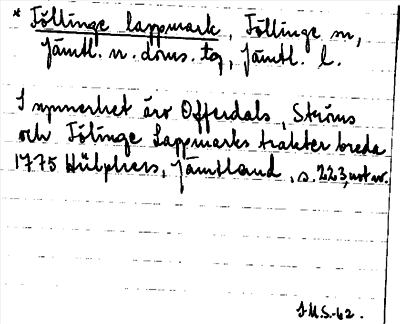 * Föllinge lappmark, Föllinge sn,
Jämtl. n. doms. tg, Jämtl. l.
I synnerhet äro Offerdals, Ströms
och Fölinge Lappmarks trakter breda
1775 Hülphers, Jämtland, s. 223, not w.
J.M.S.-62.